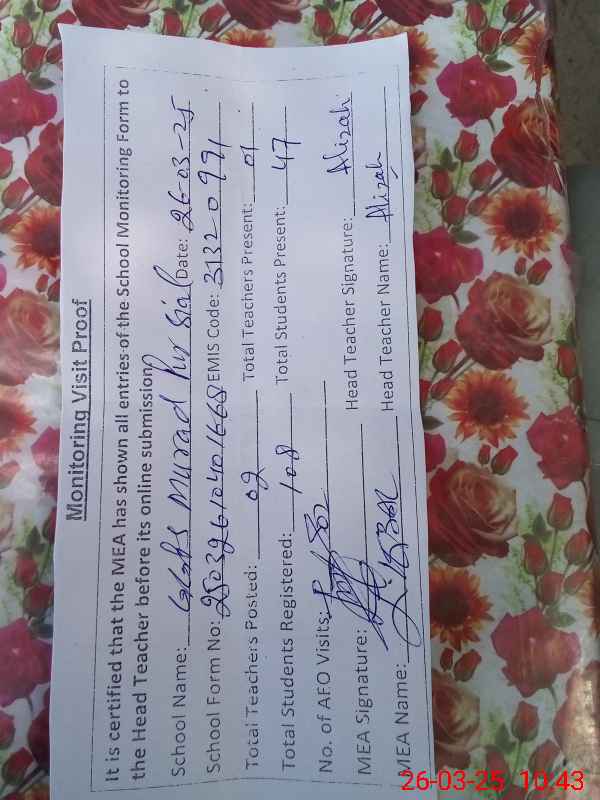 Monitoring Visit Proof
It is certified that the MEA has shown all entries of the School Monitoring Form to
the Head Teacher before its online submission
School Name: GGPS Murad Pur Sial Date: 26-03-25
School Form No: EMIS Code: 31320991
Total Teachers Posted: 02 Total Teachers Present: 01
Total Students Registered: 108 Total Students Present: 47
No. of AEO Visits:
MEA Signature: Head Teacher Signature: Alizah
MEA Name: Head Teacher Name: Alizah
26-03-25 10:43